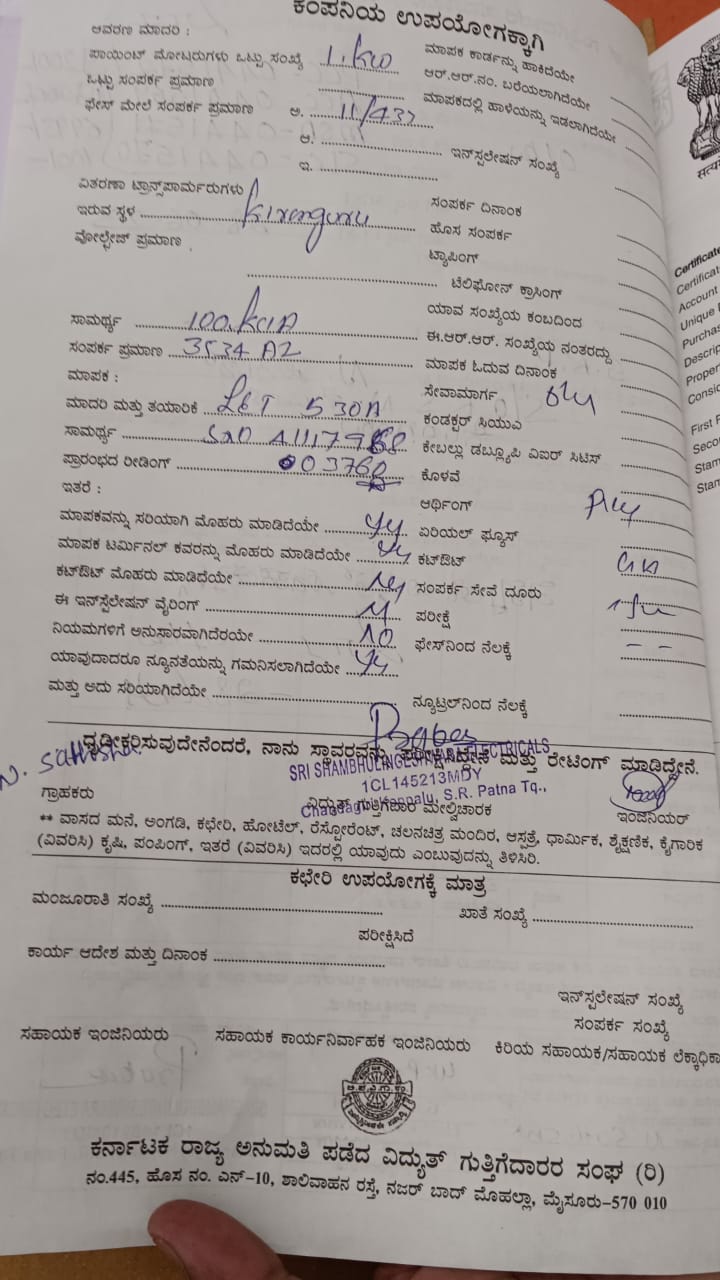 ಕಂಪನಿಯ ಉಪಯೋಗಕ್ಕಾಗಿ
ಆವರಣ ಮಾದರಿ :
ಪಾಯಿಂಟ್ ಮೋಟರುಗಳು ಒಟ್ಟು ಸಂಖ್ಯೆ 1.kw ಮಾಪಕ ಕಾರ್ಡನ್ನು ಹಾಕಿದೆಯೇ
ಒಟ್ಟು ಸಂಪರ್ಕ ಪ್ರಮಾಣ ಆರ್.ಆರ್.ನಂ. ಬರೆಯಲಾಗಿದೆಯೇ
ಫೇಸ್ ಮೇಲೆ ಸಂಪರ್ಕ ಪ್ರಮಾಣ ಅ. 11/433 ಮಾಪಕದಲ್ಲಿ ಹಾಳೆಯನ್ನು ಇಡಲಾಗಿದೆಯೇ
ಆ. ಇನ್‌ಸ್ಟಲೇಷನ್ ಸಂಖ್ಯೆ
ಇ.
ವಿತರಣಾ ಟ್ರಾನ್ಸ್‌ಪಾರ್ಮರುಗಳು ಸಂಪರ್ಕ ದಿನಾಂಕ
ಇರುವ ಸ್ಥಳ Kirenguru ಹೊಸ ಸಂಪರ್ಕ
ವೋಲ್ಟೇಜ್ ಪ್ರಮಾಣ ಟ್ಯಾಪಿಂಗ್
ಟೆಲಿಫೋನ್ ಕ್ರಾಸಿಂಗ್
ಸಾಮರ್ಥ್ಯ 100.kva ಯಾವ ಸಂಖ್ಯೆಯ ಕಂಬದಿಂದ
ಸಂಪರ್ಕ ಪ್ರಮಾಣ 3534 A2 ಈ.ಆರ್.ಆರ್. ಸಂಖ್ಯೆಯ ನಂತರದ್ದು
ಮಾಪಕ : ಮಾಪಕ ಓದುವ ದಿನಾಂಕ
ಮಾದರಿ ಮತ್ತು ತಯಾರಿಕೆ L&T 530A ಸೇವಾಮಾರ್ಗ
ಸಾಮರ್ಥ್ಯ ಕಂಡಕ್ಟರ್ ಸಿಯುವಿ
ಪ್ರಾರಂಭದ ರೀಡಿಂಗ್ 003768 ಕೇಬಲ್ಲು ಡಬ್ಲ್ಯೂಪಿ ವಿಐರ್ ಸಿಟಿಸ್
ಇತರೆ : ಕೊಳವೆ
ಆರ್ಥಿಂಗ್
ಮಾಪಕವನ್ನು ಸರಿಯಾಗಿ ಮೊಹರು ಮಾಡಿದೆಯೇ ಏರಿಯಲ್ ಫ್ಯೂಸ್
ಮಾಪಕ ಟರ್ಮಿನಲ್ ಕವರನ್ನು ಮೊಹರು ಮಾಡಿದೆಯೇ ಕಟ್‌ಔಟ್
ಕಟ್‌ಔಟ್ ಮೊಹರು ಮಾಡಿದೆಯೇ ಸಂಪರ್ಕ ಸೇವೆ ದೂರು
ಈ ಇನ್‌ಸ್ಟೆಲೇಷನ್ ವೈರಿಂಗ್ ಪರೀಕ್ಷೆ
ನಿಯಮಗಳಿಗೆ ಅನುಸಾರವಾಗಿದೆರಯೇ NO ಫೇಸ್‌ನಿಂದ ನೆಲಕ್ಕೆ - -
ಯಾವುದಾದರೂ ನ್ಯೂನತೆಯನ್ನು ಗಮನಿಸಲಾಗಿದೆಯೇ
ಮತ್ತು ಅದು ಸರಿಯಾಗಿದೆಯೇ ನ್ಯೂಟ್ರಲ್‌ನಿಂದ ನೆಲಕ್ಕೆ
ಧೃಢೀಕರಿಸುವುದೇನೆಂದರೆ, ನಾನು ಸ್ಥಾವರವನ್ನು ಪರೀಕ್ಷಿಸಿದ್ದೇನೆ ಮತ್ತು ರೇಟಿಂಗ್ ಮಾಡಿದ್ದೇನೆ.
N. Sathisha
SRI SHAMBHULINGESHWARA ELECTRICALS
1CL145213MDY
S.R. Patna Tq.,
ಗ್ರಾಹಕರು ವಿದ್ಯುತ್ ಗುತ್ತಿಗೆದಾರ ಮೇಲ್ವಿಚಾರಕ ಇಂಜಿನಿಯರ್
** ವಾಸದ ಮನೆ, ಅಂಗಡಿ, ಕಛೇರಿ, ಹೋಟೆಲ್, ರೆಸ್ಟೋರೆಂಟ್, ಚಲನಚಿತ್ರ ಮಂದಿರ, ಆಸ್ಪತ್ರೆ, ಧಾರ್ಮಿಕ, ಶೈಕ್ಷಣಿಕ, ಕೈಗಾರಿಕ
(ವಿವರಿಸಿ) ಕೃಷಿ, ಪಂಪಿಂಗ್, ಇತರೆ (ವಿವರಿಸಿ) ಇದರಲ್ಲಿ ಯಾವುದು ಎಂಬುವುದನ್ನು ತಿಳಿಸಿರಿ.
ಕಛೇರಿ ಉಪಯೋಗಕ್ಕೆ ಮಾತ್ರ
ಮಂಜೂರಾತಿ ಸಂಖ್ಯೆ ಖಾತೆ ಸಂಖ್ಯೆ
ಪರೀಕ್ಷಿಸಿದೆ
ಕಾರ್ಯ ಆದೇಶ ಮತ್ತು ದಿನಾಂಕ
ಇನ್‌ಸ್ಪಲೇಷನ್ ಸಂಖ್ಯೆ
ಸಂಪರ್ಕ ಸಂಖ್ಯೆ
ಸಹಾಯಕ ಇಂಜಿನಿಯರು ಸಹಾಯಕ ಕಾರ್ಯನಿರ್ವಾಹಕ ಇಂಜಿನಿಯರು ಕಿರಿಯ ಸಹಾಯಕ/ಸಹಾಯಕ ಲೆಕ್ಕಾಧಿಕಾ
ಕರ್ನಾಟಕ ರಾಜ್ಯ ಅನುಮತಿ ಪಡೆದ ವಿದ್ಯುತ್ ಗುತ್ತಿಗೆದಾರರ ಸಂಘ (ರಿ)
ನಂ.445, ಹೊಸ ನಂ. ಎನ್-10, ಶಾಲಿವಾಹನ ರಸ್ತೆ, ನಜರ್ ಬಾದ್ ಮೊಹಲ್ಲಾ, ಮೈಸೂರು-570 010
Certificate
Certificat
Account
Unique
Purchas
Descrip
Proper
Consid
First P
Seco
Stam
Stan